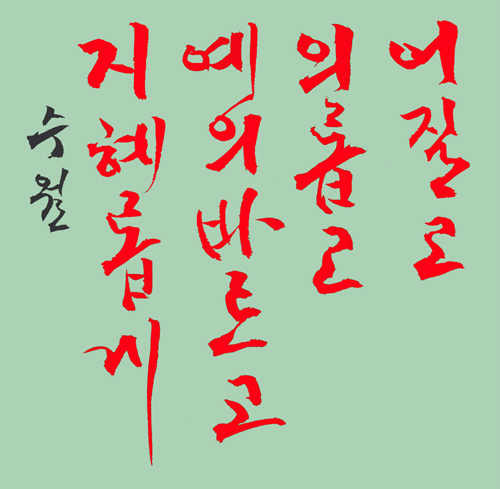 어질고
의롭고
예의바르고
지혜롭게
수월